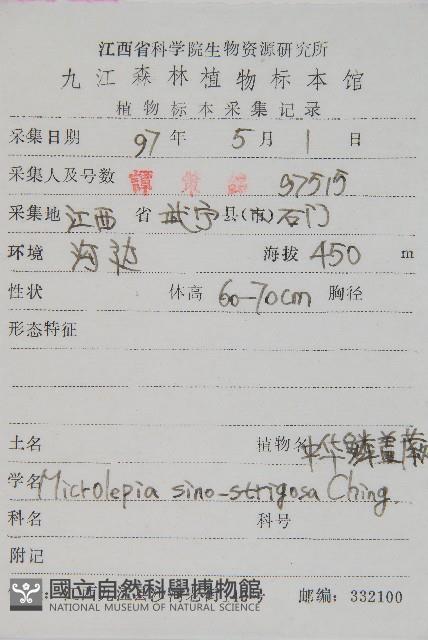 江西省科学院生物资源研究所
九江森林植物标本馆
植物标本采集记录
采集日期 97 年 5 月 1 日
采集人及号数 譚 97515
采集地 江西 省 武宁 县(市) 石门
环境 沟边 海拔 450 m
性状 体高 60-70cm 胸径
形态特征
土名 植物名 中华鳞盖蕨
学名 Microlepia sino-strigosa Ching.
科名 科号
附记
國立自然科學博物館 号 邮编: 332100
NATIONAL MUSEUM OF NATURAL SCIENCE